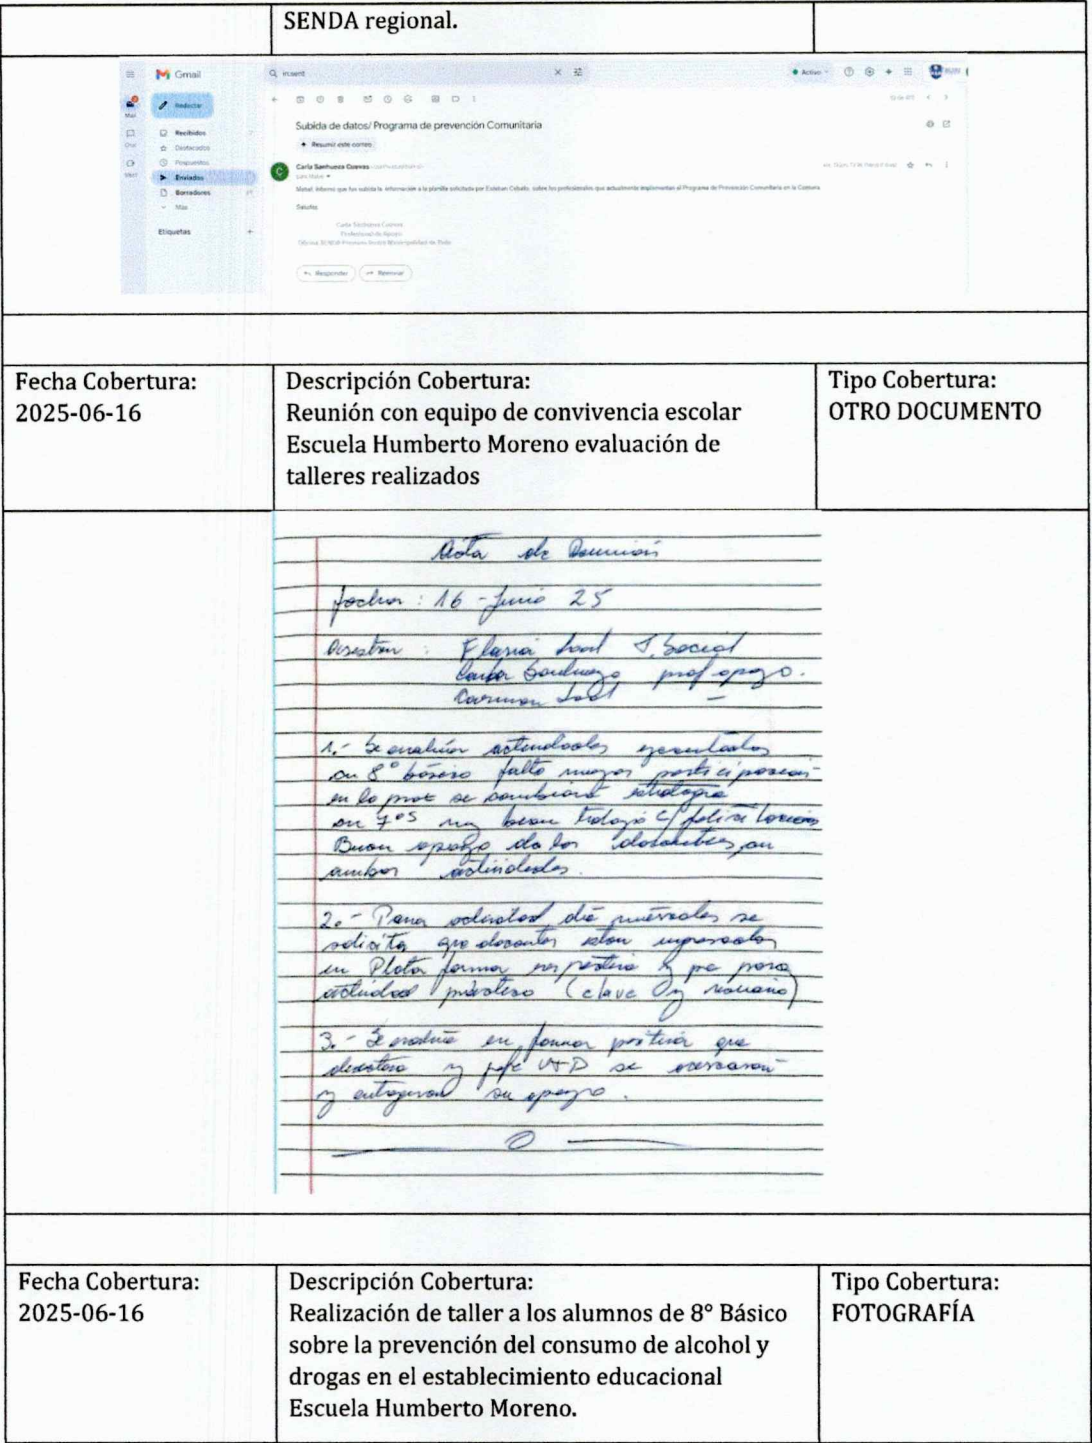 SENDA regional.
Gmail
Redactar
Recibidos
Destacados
Pospuestos
Enviados
Borradores
Más
Etiquetas
Activo
Subida de datos/ Programa de prevención Comunitaria
Resumir este correo
Carla Sanhueza Cuevas
para Mabel
Mabel, informo que fue subida la información a la planilla solicitada por Esteban Ceballo, sobre los profesionales que actualmente implementan el Programa de Prevención Comunitaria en la Comuna
Saludos
Carla Sanhueza Cuevas
Profesional de Apoyo
Responder
Reenviar
Fecha Cobertura:
2025-06-16
Descripción Cobertura:
Reunión con equipo de convivencia escolar
Escuela Humberto Moreno evaluación de
talleres realizados
Tipo Cobertura:
OTRO DOCUMENTO
Acta de Reunión
fecha: 16 - Junio 25
Asisten: Flavia Leal T. Social
Carla Sanhueza prof apoyo.
Carmen Leal –
1.- Se evalúan actividades ejecutadas
en 8° básico falto mayor participación
en la prox se cambiará estrategia
en 7os muy buen trabajo c/ felicitaciones
Buen apoyo de los docentes en
ambas actividades.
2.- Para actividad día miércoles se
solicita que docentes estén ingresados
en Plataforma respectiva y pc para
actividad práctica (clave y usuario)
3.- Se evalúa en forma positiva que
directora y jefe UTP se acercaron
y entregaron su apoyo.
Fecha Cobertura:
2025-06-16
Descripción Cobertura:
Realización de taller a los alumnos de 8° Básico
sobre la prevención del consumo de alcohol y
drogas en el establecimiento educacional
Escuela Humberto Moreno.
Tipo Cobertura:
FOTOGRAFÍA